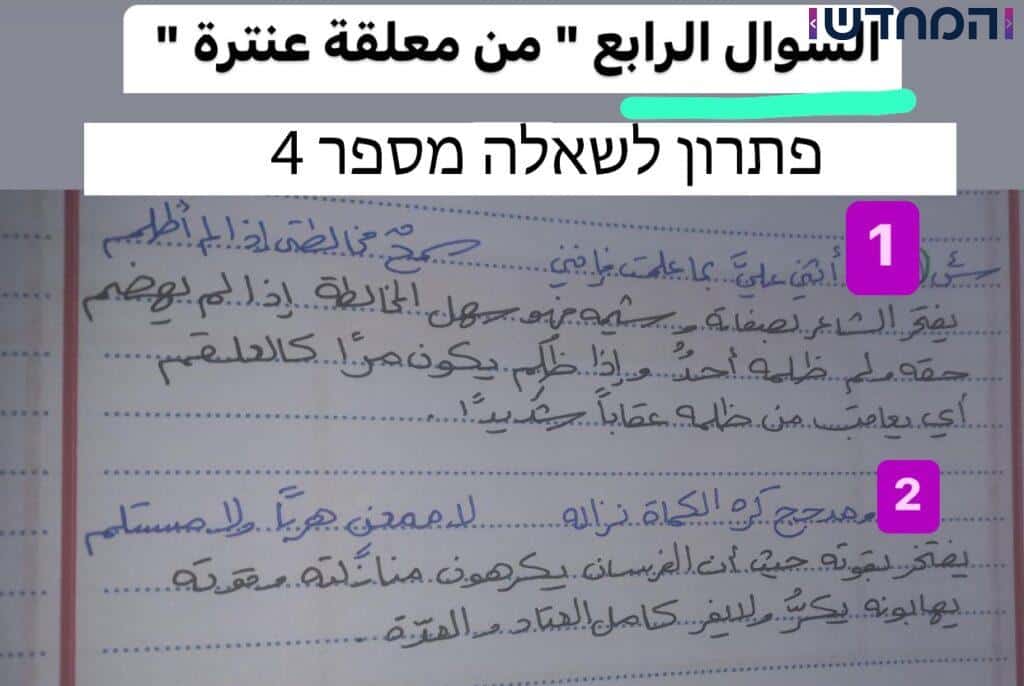 המחדש
السوال الرابع " من معلقة عنترة "
פתרון לשאלה מספר 4
1
س٤) أثني عليّ بما علمت فإنني سمحٌ مخالطتي إذا لم أظلم
يفتخر الشاعر بصفاته وشيمه فهو سهل المخالطة إذا لم يهضم
حقه ولم ظلمه أحدٌ وإذا ظلم يكون مرًا كالعلقم
أي يعاقب من ظلمه عقاباً شديدًا.
2
ومدجج كره الكماة نزاله لا ممعن هرباً ولا مستلم
يفتخر بقوته حيث أن الفرسان يكرهون منازلته وقوته
يهابونه يكرُّ ولا يفر كامل العتاد والعدّة.